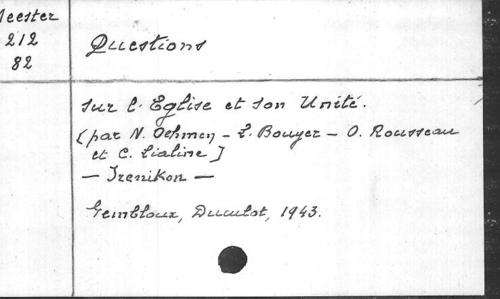 Meester
212
82
Questions
sur l'Eglise et son Unité.
(par N. Oehmen - L. Bouyer - O. Rousseau
et C. Lialine]
- Irenikon -
Gembloux, Duculot, 1943.